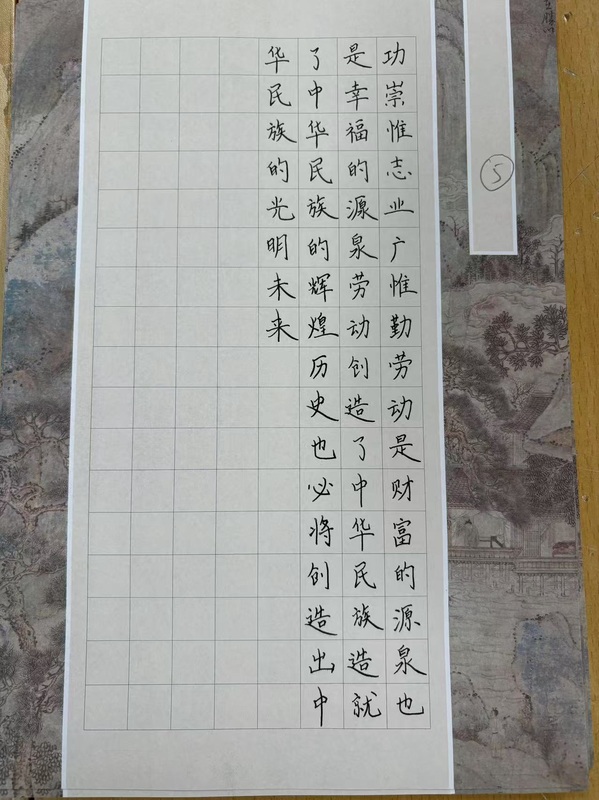 功崇惟志业广惟勤劳动是财富的源泉也
是幸福的源泉劳动创造了中华民族造就
了中华民族的辉煌历史也必将创造出中
华民族的光明未来
5